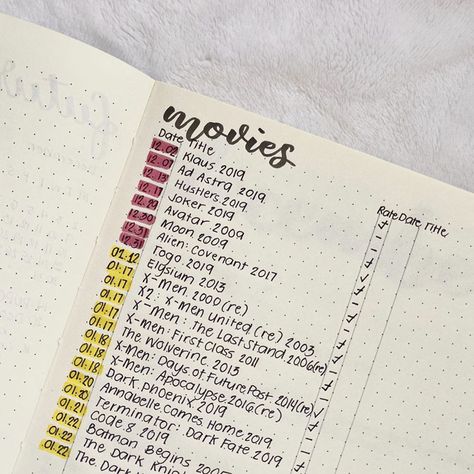 movies
Date Title Rate Date Title
12.02 Klaus 2019
12.07 Ad Astra 2019
12.13 Hustlers 2019
12.17 Joker 2019
12.29 Avatar 2009
12.30 Moon 2009
12.31 Alien: Covenant 2017
12.31 Togo 2019
01.12 Elysium 2013
01.17 X-Men 2000 (re)
01.17 X2: X-Men United (re) 2003
01.17 X-Men: The Last Stand 2006 (re)
01.17 X-Men: First Class 2011
01.18 The Wolverine 2013
01.18 X-Men: Days of Future Past 2014 (re)
01.18 X-Men: Apocalypse 2016 (re)
01.20 Dark Phoenix 2019
01.20 Annabelle Comes Home 2019
01.21 Terminator: Dark Fate 2019
01.22 Code 8 2019
01.22 Batman Begins 2005
01.22 The Dark Knight
The Dark